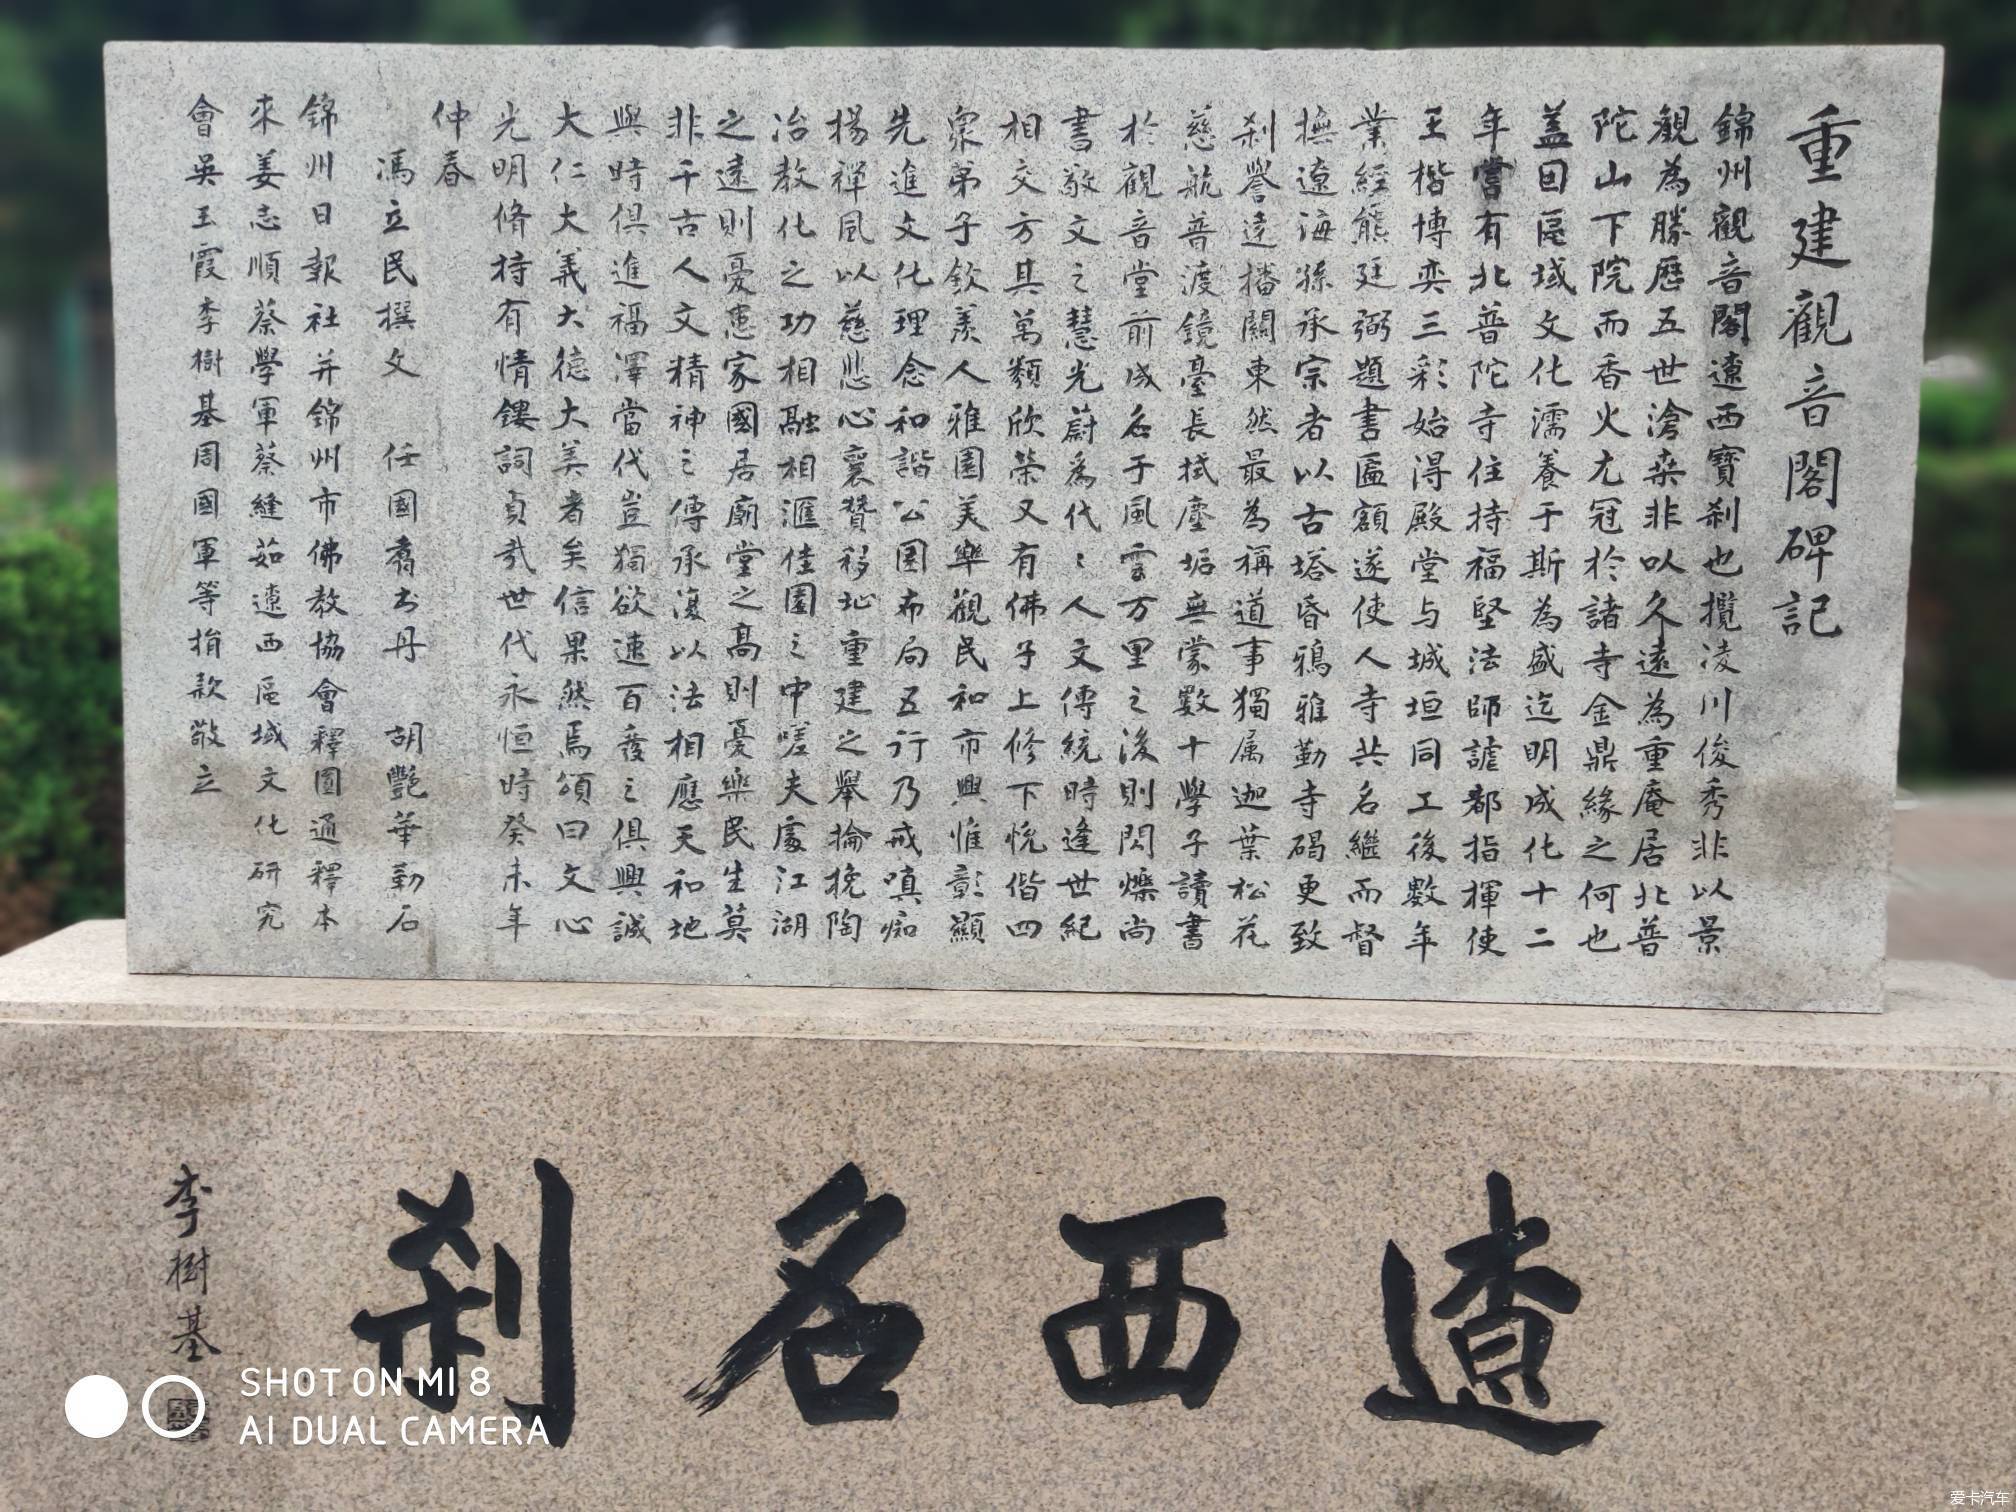 重建觀音閣碑記
錦州觀音閣遼西寶剎也攬凌川俊秀非以景
觀為勝歷五世滄桑非以久遠為重庵居北普
陀山下院而香火尤冠於諸寺金鼎緣之何也
蓋因區域文化濡養于斯為盛迄明成化十二
年嘗有北普陀寺住持福堅法師謔都指揮使
王楷博奕三彩始得殿堂与城垣同工後數年
業經熊廷弼題書匾額遂使人寺共名繼而督
撫遼海孫承宗者以古塔昏鴉雅勤寺碣更致
剎譽遠播關東然最為稱道事獨属迦葉松花
慈航普渡鏡臺長拭塵垢無蒙數十學子讀書
於觀音堂前成名于風雲万里之後則閃爍尚
書敬文之慧光蔚為代々人文傳統時逢世紀
相交方其萬類欣榮又有佛子上修下悅偕四
眾弟子欽羨人雅園美樂觀民和市興惟彰顯
先進文化理念和諧公園布局五行乃戒嗔痴
揚禪風以慈悲心襄贊移址重建之舉掄挽陶
冶教化之功相融相滙佳園之中嗟夫處江湖
之遠則憂患家國居廟堂之高則憂樂民生莫
非千古人文精神之傳承復以法相應天和地
與時俱進福澤當代豈獨欲速百廢之俱興誠
大仁大義大德大美者矣信果然焉頌曰文心
光明脩持有情鏤詞貞珉世代永恒時癸未年
仲春
馮立民撰文 任國君书丹 胡艷華勒石
錦州日報社并錦州市佛教協會釋圓通釋本
來姜志順蔡學軍蔡縫茹遼西區域文化研究
會吳玉霞李樹基周國軍等捐款敬立
遼西名剎
李樹基
SHOT ON MI 8
AI DUAL CAMERA
爱卡汽车